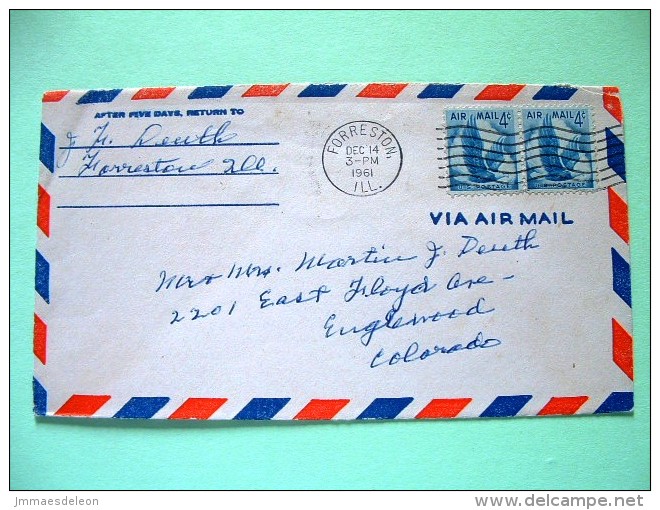 AFTER FIVE DAYS, RETURN TO
J H Deuth
Forreston Ill.
FORRESTON,
DEC 14
3-PM
1961
ILL.
AIR MAIL 4¢
AIR MAIL 4¢
U.S. POSTAGE
U.S. POSTAGE
VIA AIR MAIL
Mr + Mrs. Martin J. Deuth
2201 East Floyd Ave -
Englewood
Colorado
jmmaesdeleon
delcampe.net